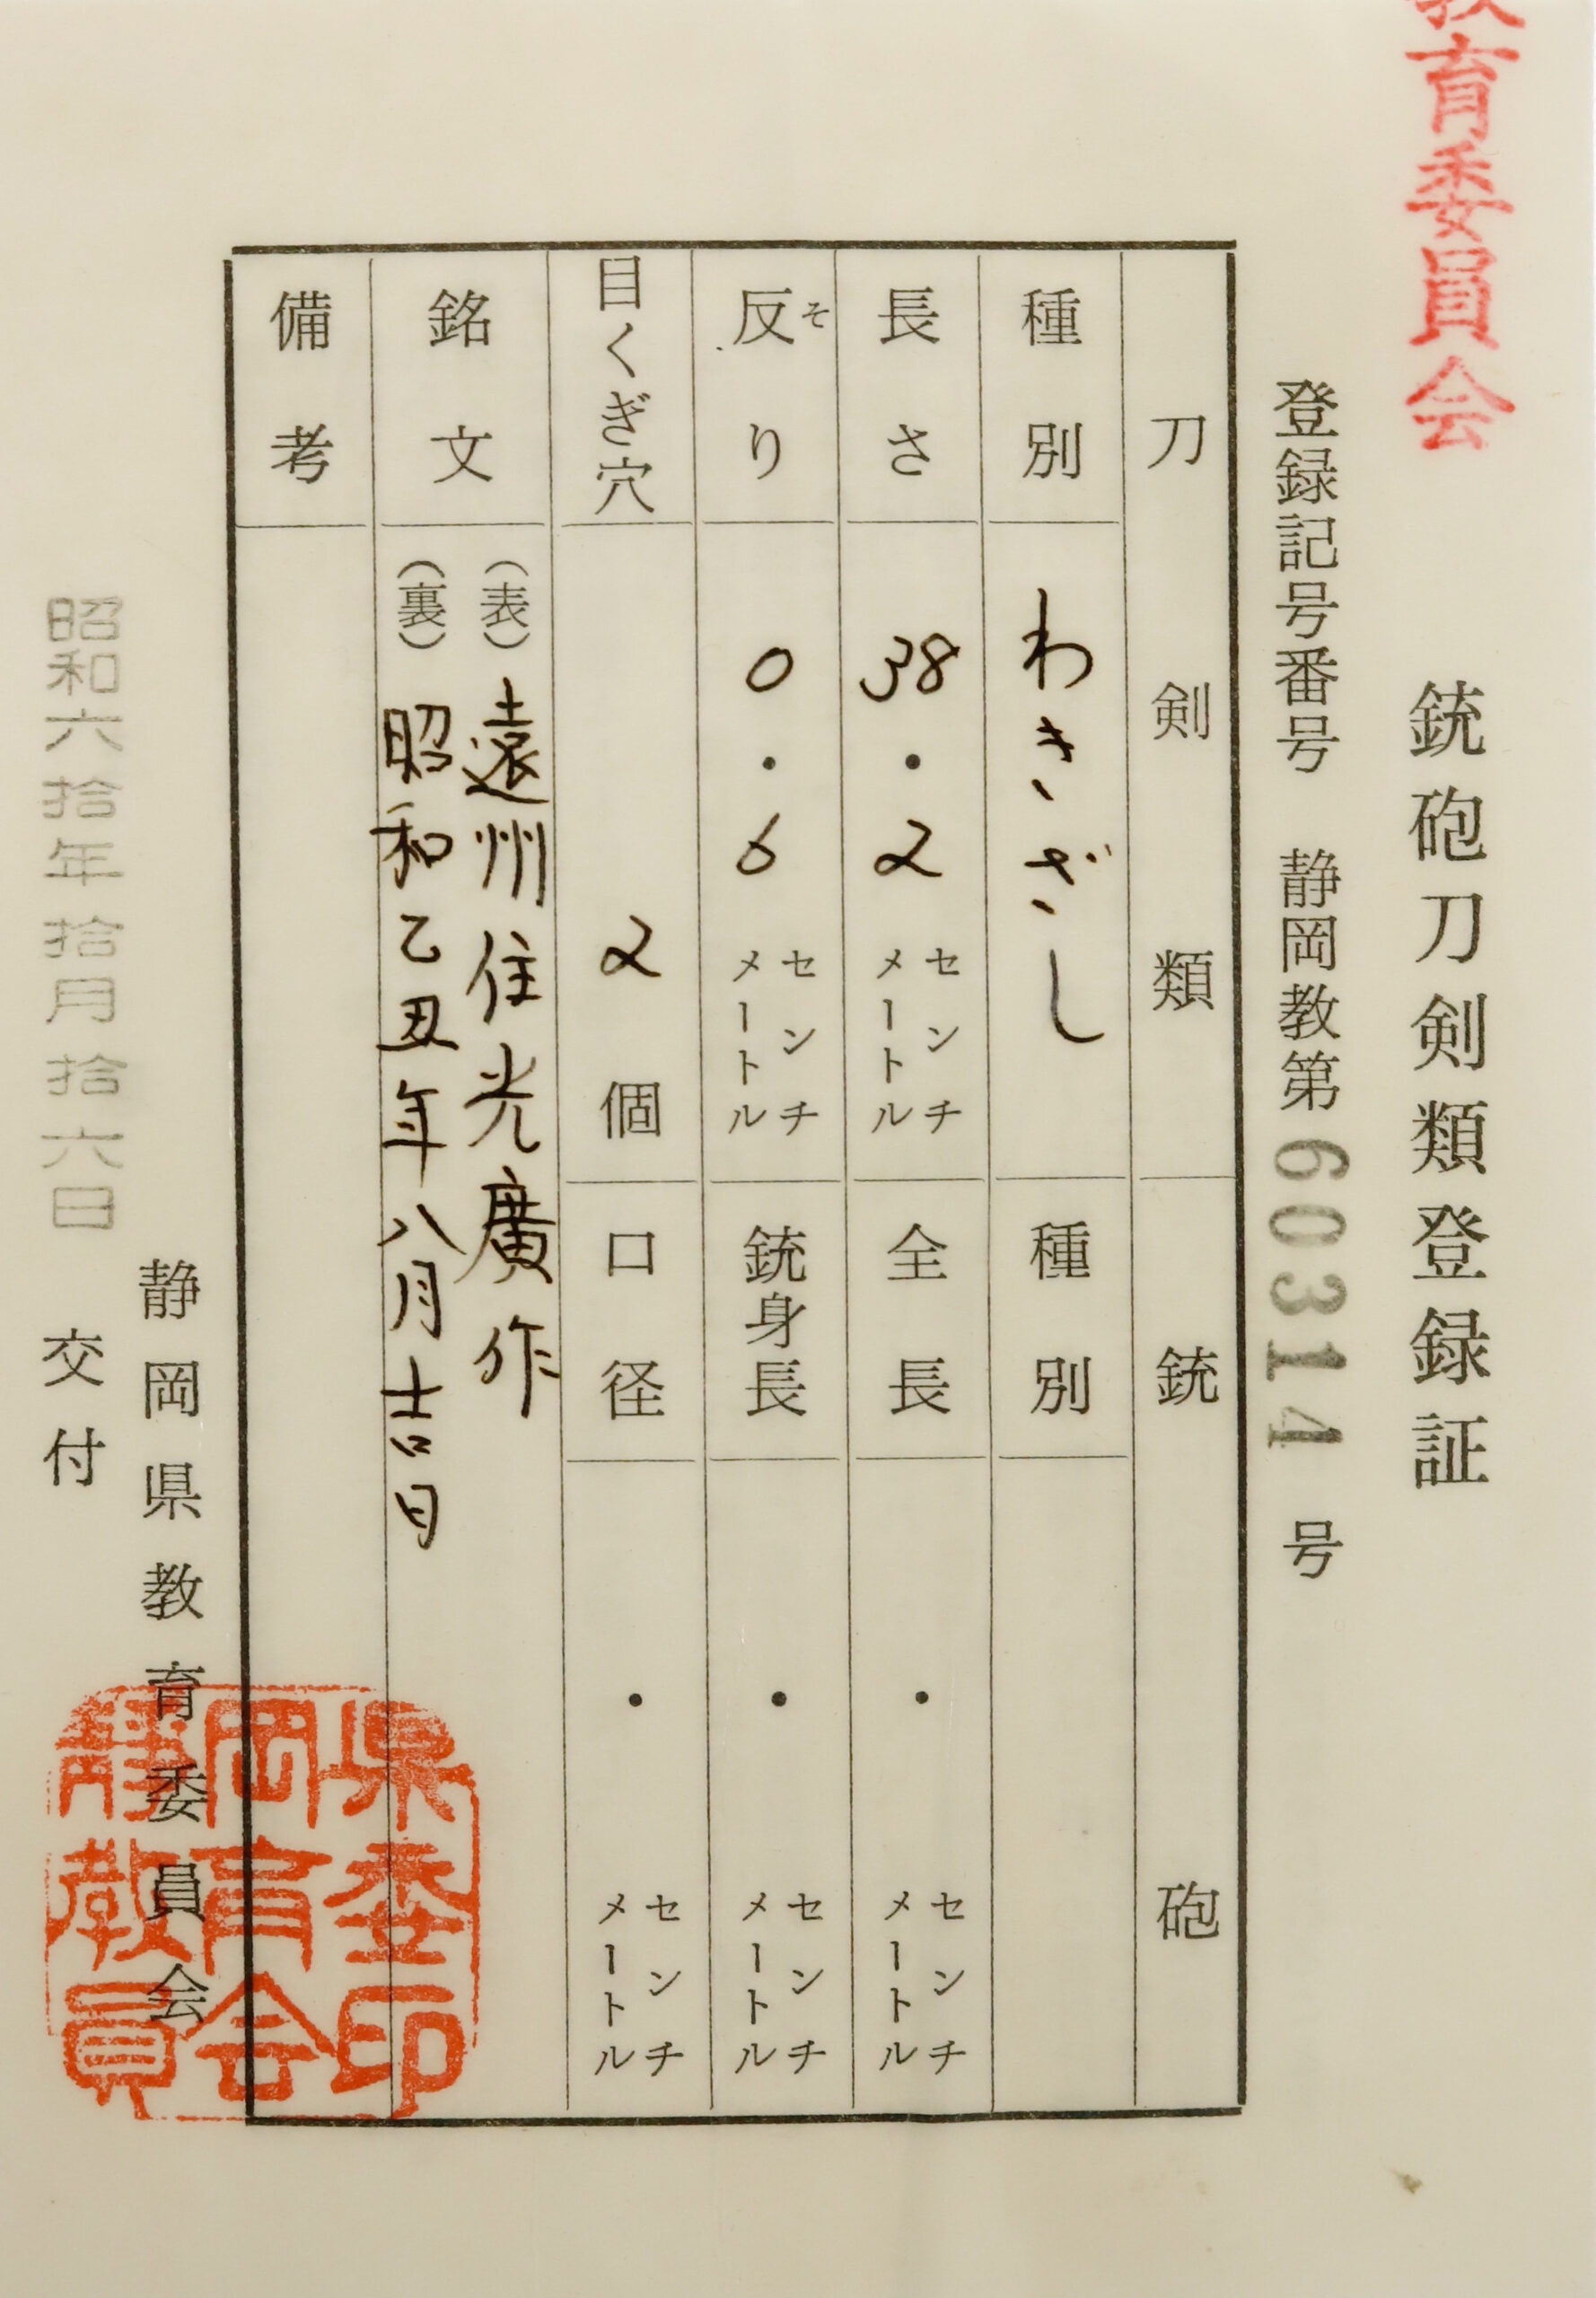 教育委員会
銃砲刀剣類登録証
登録記号番号 静岡教第60314号
刀剣類
銃砲
種別
わきざし
種別
長さ
38・2センチメートル
全長
・センチメートル
反り
そ
0・6センチメートル
銃身長
・センチメートル
目くぎ穴
2個
口径
・センチメートル
銘文
(表)遠州住光廣作
(裏)昭和乙丑年八月吉日
備考
静岡県教育委員会
昭和六拾年拾月拾六日 交付
静岡県
教育委
員会印